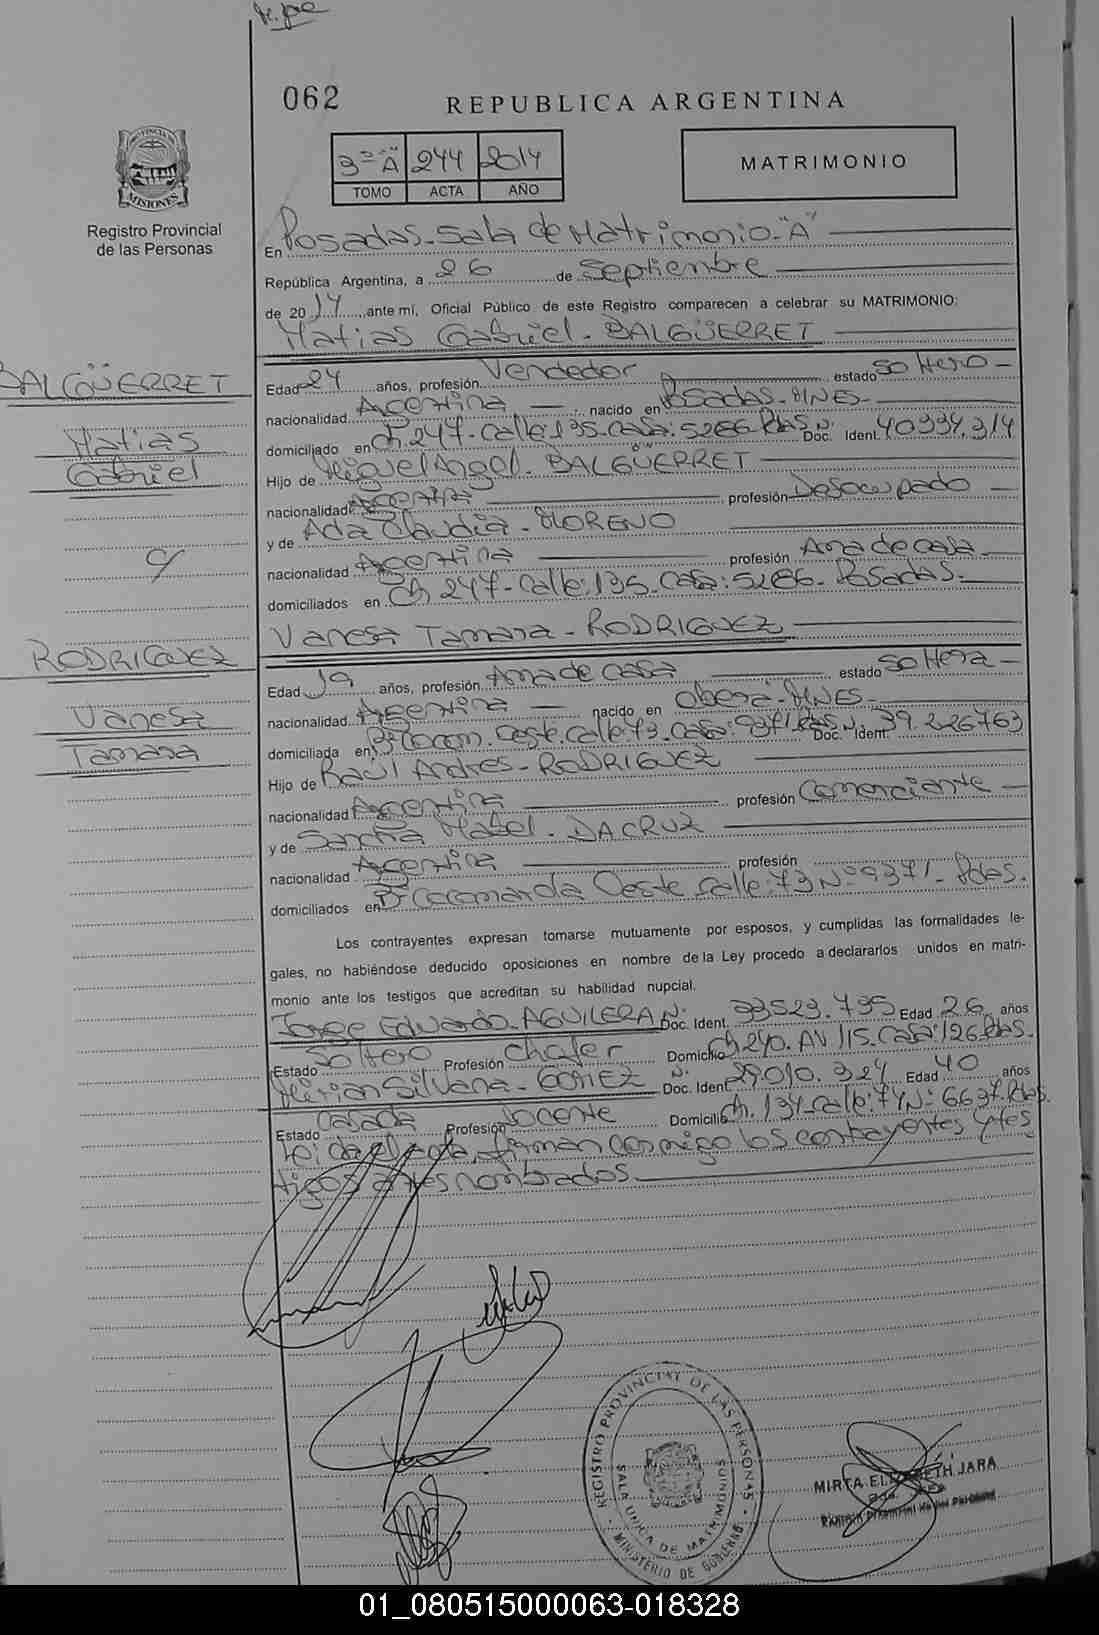 062
REPUBLICA ARGENTINA
PROVINCIA DE
MISIONES
Registro Provincial
de las Personas
3º "A" 244 2014
TOMO ACTA AÑO
MATRIMONIO
En Posadas-Sala de Matrimonio-"A"
República Argentina, a 26 de Septiembre
de 2014, ante mí, Oficial Público de este Registro comparecen a celebrar su MATRIMONIO:
Matias Gabriel-BALGÜERRET
BALGÜERRET
Matias
Gabriel
c/
RODRIGUEZ
Vanesa
Tamara
Edad 24 años, profesión Vendedor estado Soltero-
nacionalidad Argentina - nacido en Posadas-MNES-
domiciliado en Ch 247-Calle:135-Casa:5266-Pdas Doc. Ident. Nº 40994.314
Hijo de Miguel Angel-BALGÜERRET
nacionalidad Argentina profesión Desocupado -
y de Ada Claudia-MORENO
nacionalidad Argentina profesión Ama de casa
domiciliados en Ch 247-Calle:135-Casa:5266-Posadas-
Vanesa Tamara-RODRIGUEZ
Edad 19 años, profesión Ama de casa estado Soltera-
nacionalidad Argentina - nacido en Oberá-MNES-
domiciliada en Calle:73-Casa:9371-Pdas Doc. Ident. Nº 39.226763
Hijo de Raúl Andres-RODRIGUEZ
nacionalidad Argentina profesión Comerciante -
y de Sandra Mabel-DACRUZ
nacionalidad Argentina profesión
domiciliados en Oeste Calle:73 Nº:9371-Pdas.
Los contrayentes expresan tomarse mutuamente por esposos, y cumplidas las formalidades le-
gales, no habiéndose deducido oposiciones en nombre de la Ley procedo a declararlos unidos en matri-
monio ante los testigos que acreditan su habilidad nupcial.
Jorge Eduardo-AGUILERA Doc. Ident. Nº 33523.795 Edad 26 años
Estado Soltero Profesión Chofer Domicilio Ch 240-AV 115-Casa:126-Pdas.
Mirian Silvana-GOMEZ Doc. Ident. Nº 29.010.324 Edad 40 años
Estado Casada Profesión Docente Domicilio Ch. 134-Calle:74 Nº:6637-Pdas.
Leida el acta, firman conmigo los contrayentes y tes
tigos antes nombrados
REGISTRO PROVINCIAL DE LAS PERSONAS
SALA UNICA DE MATRIMONIOS
MINISTERIO DE GOBIERNO
MIRTA ELIZABETH JARA
01_080515000063-018328